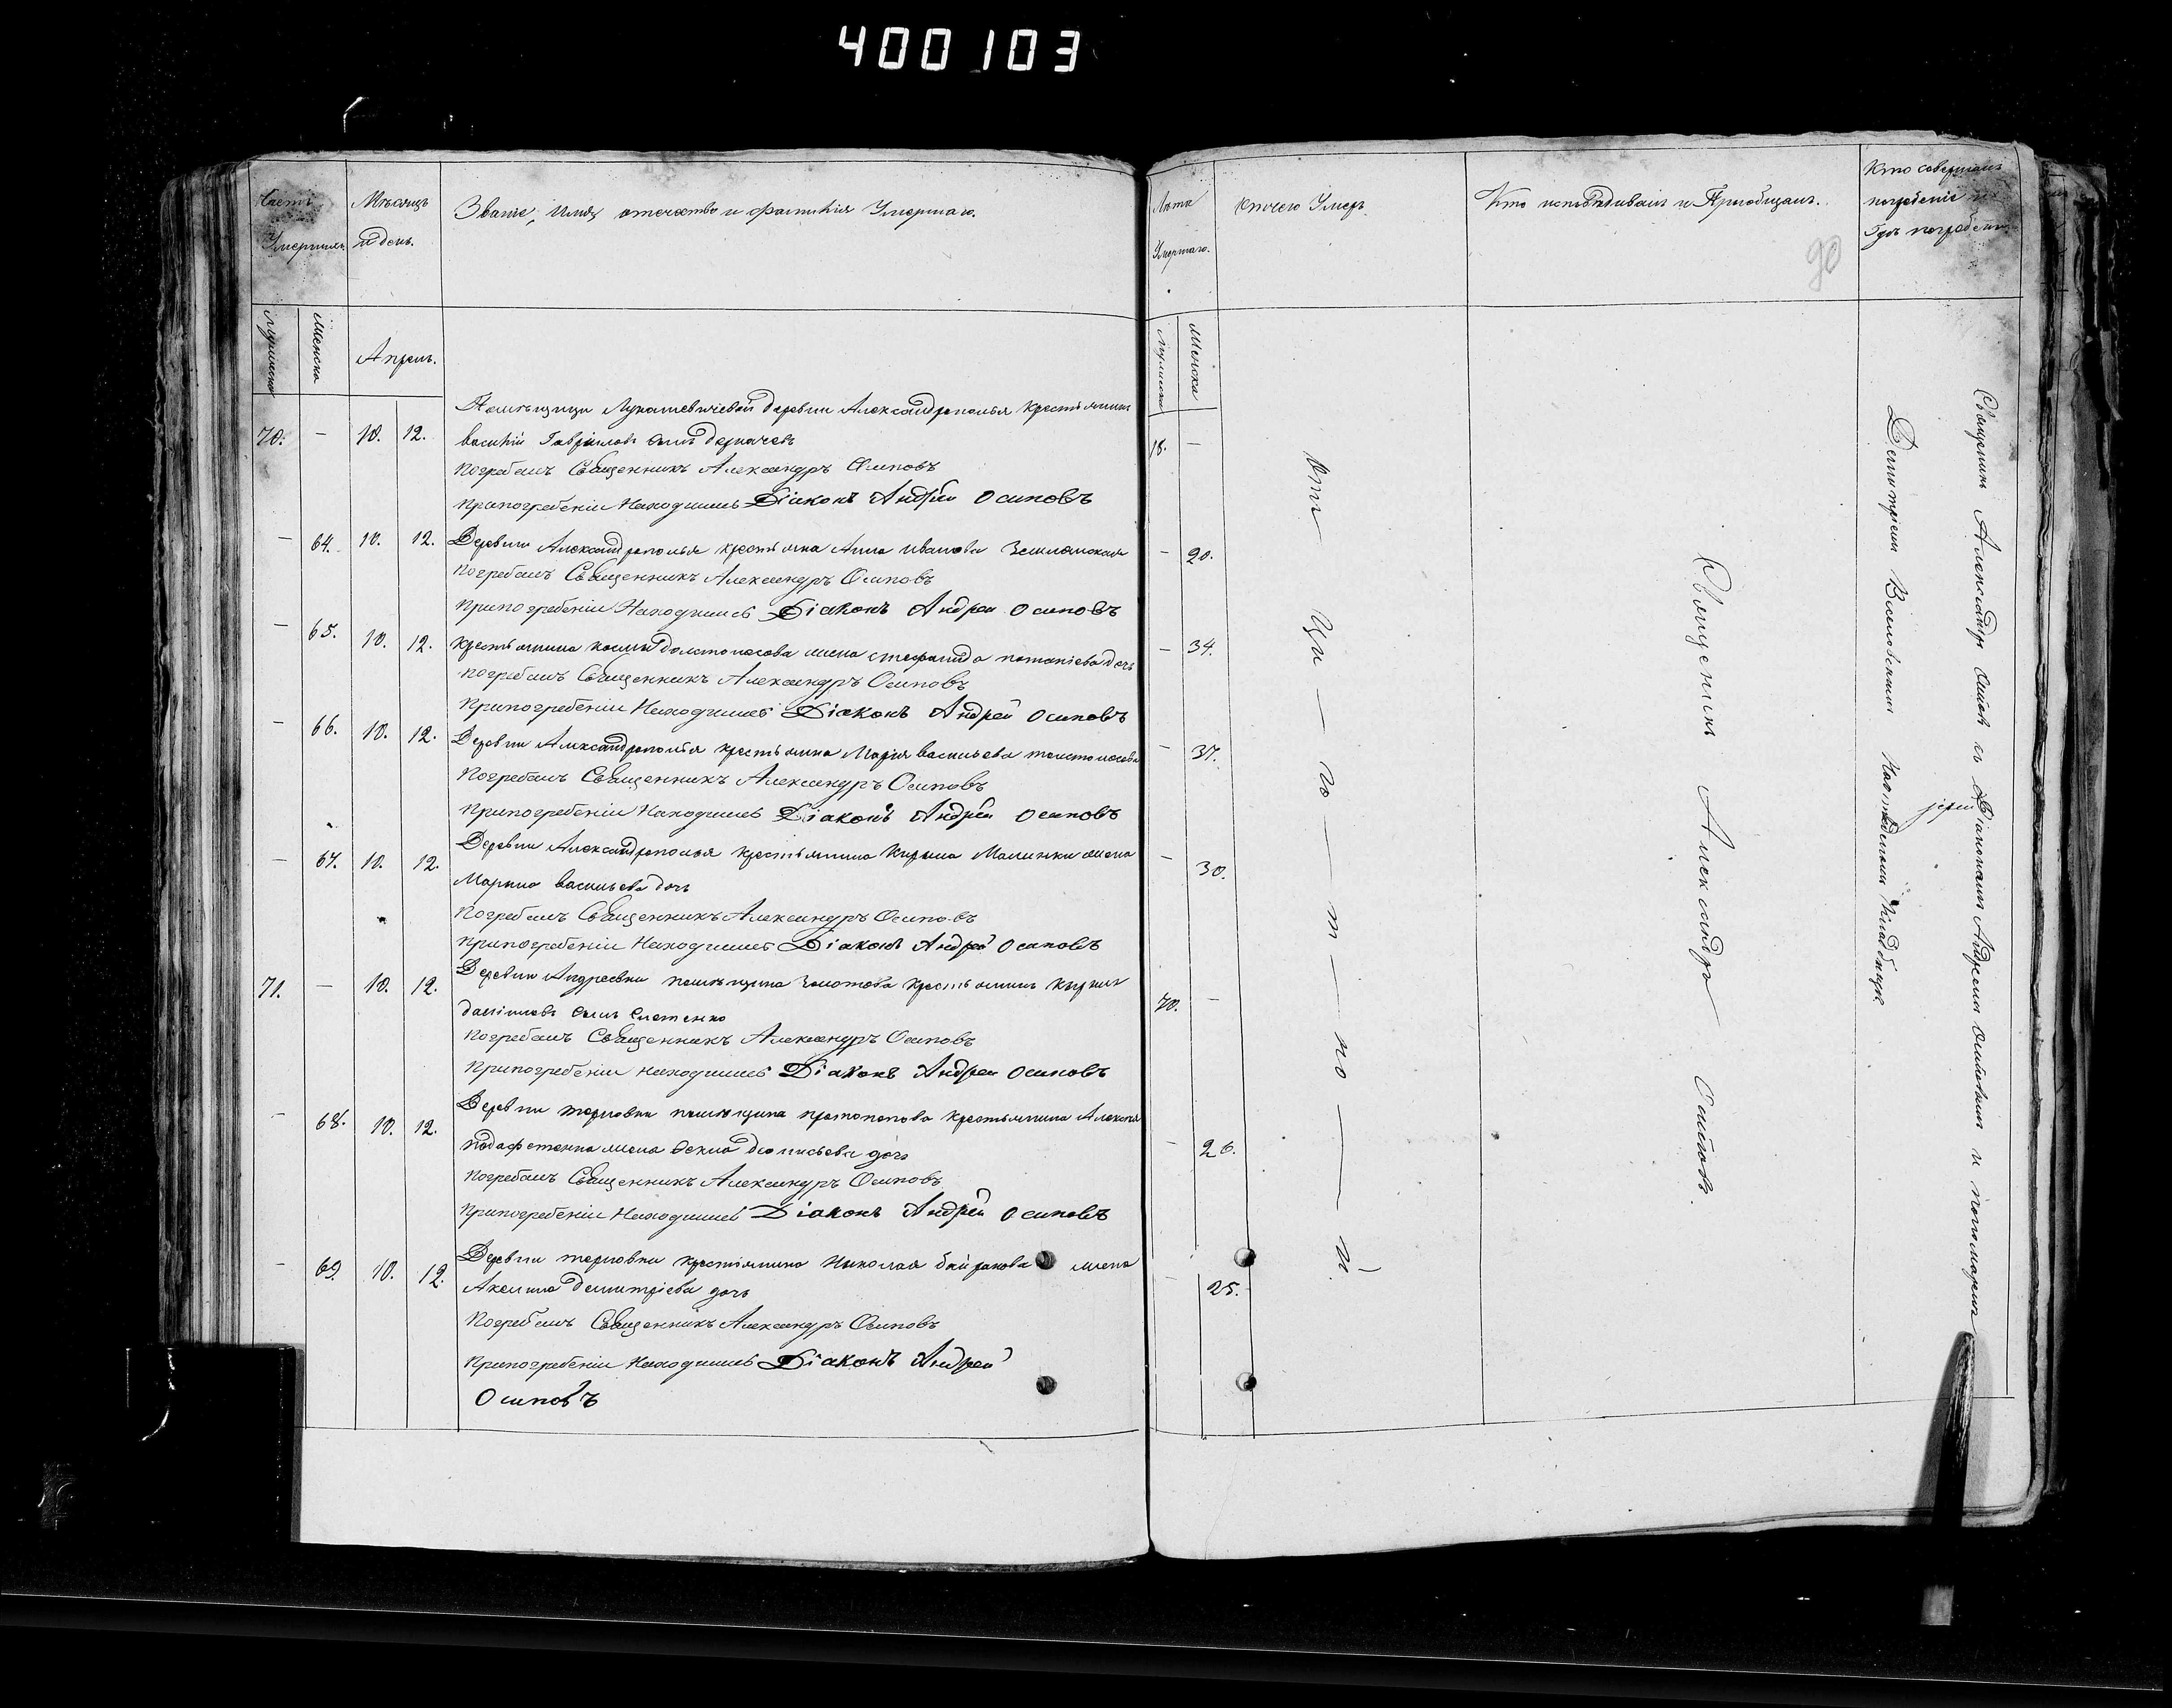 400103
Счетъ Умершихъ
Мѣсяцъ и день.
Званіе, Имя, отечество и фамилія Умершаго.
Лѣта Умершаго.
отчего Умеръ.
Кто исповѣдывалъ и Пріобщалъ.
Кто совершалъ погребеніе и гдѣ погребены
90
Мужеска
Женска
Апрель.
Мужеска
Женска
Помѣщицы Лукашевичевой деревни Александрополья крестьянинъ
70. — 10. 12. василій Гавриловъ сынъ деркачевъ 18. —
Погребалъ Священникъ Александръ Осиповъ
Припогребеніи Находился Діаконъ Андрей Осиповъ
— 64. 10. 12. Деревни Александрополья крестьянка Анна иванова — 20.
Погребалъ Священникъ Александръ Осиповъ
Припогребеніи Находился Діаконъ Андрей Осиповъ
— 65. 10. 12. крестьянина космы долстоносова жена стефанида потапіева дочь — 34.
Погребалъ Священникъ Александръ Осиповъ
Припогребеніи Находился Діаконъ Андрей Осиповъ
— 66. 10. 12. Деревни Александрополья крестьянка Марія васильева толстоносова — 37.
Погребалъ Священникъ Александръ Осиповъ
Припогребеніи Находился Діаконъ Андрей Осиповъ
— 67. 10. 12. Деревни Александрополья крестьянина Кирила Малинки жена — 30.
Марина васильева дочь
Погребалъ Священникъ Александръ Осиповъ
Припогребеніи Находился Діаконъ Андрей Осиповъ
71. — 10. 12. Деревни Андреевки помѣщика Золотова крестьянинъ кирилъ 70. —
даніиловъ сынъ
Погребалъ Священникъ Александръ Осиповъ
Припогребеніи находился Діаконъ Андрей Осиповъ
— 68. 10. 12. Деревни терновки помѣщика протопопова крестьянина Алексея — 26.
жена дочь
Погребалъ Священникъ Александръ Осиповъ
Припогребеніи Находился Діаконъ Андрей Осиповъ
— 69. 10. 12. Деревни терновки крестьянина Николая байракова жена — 25.
Акелина демитріева дочь
Погребалъ Священникъ Александръ Осиповъ
Припогребеніи находился Діаконъ Андрей
Осиповъ
отъ — цы — го — т — но — й.
Священникъ Александръ Осиповъ.
Священникъ Александръ Осиповъ съ Діакономъ Андреемъ Осиповымъ и пономаремъ
іерей
Демитріемъ Веселовскимъ На кладбищѣ